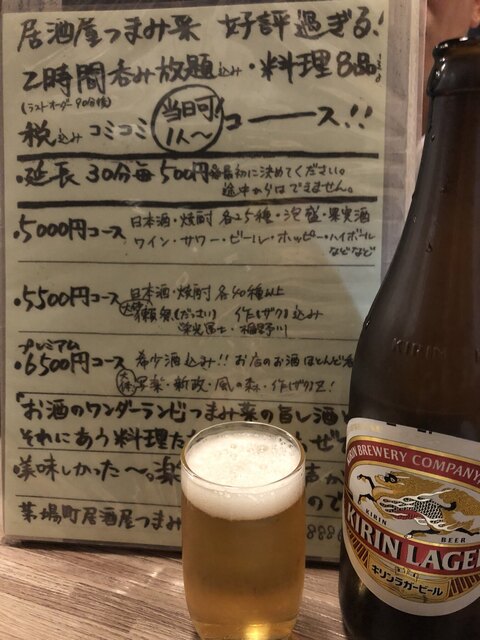 居酒屋つまみ菜 好評過ぎる!
2時間呑み放題込み・料理8品
(ラストオーダー90分後)
税込みコミコミ 当日可!
1人〜
コース!!
・延長 30分毎 500円 最初に決めてください。
途中からはできません。
・5000円コース 日本酒・焼酎 各25種・泡盛・果実酒
ワイン・サワー・ビール・ホッピー・ハイボール
などなど
・5500円コース 日本酒・焼酎 各40種以上
獺祭(だっさい) 作(ザク)込み
プレミアム
・6500円コース 希少酒込み!! お店のお酒ほとんど
写楽・新政・風の森・作(ザク)Z!
「お酒のワンダーランドつまみ菜の旨し酒
それにあう料理た
美味しかった〜。楽
茅場町居酒屋つまみ
888
KIRIN
KIRIN BREWERY COMPANY
KIRIN
BEER
KIRIN LAGER
キリンラガービール